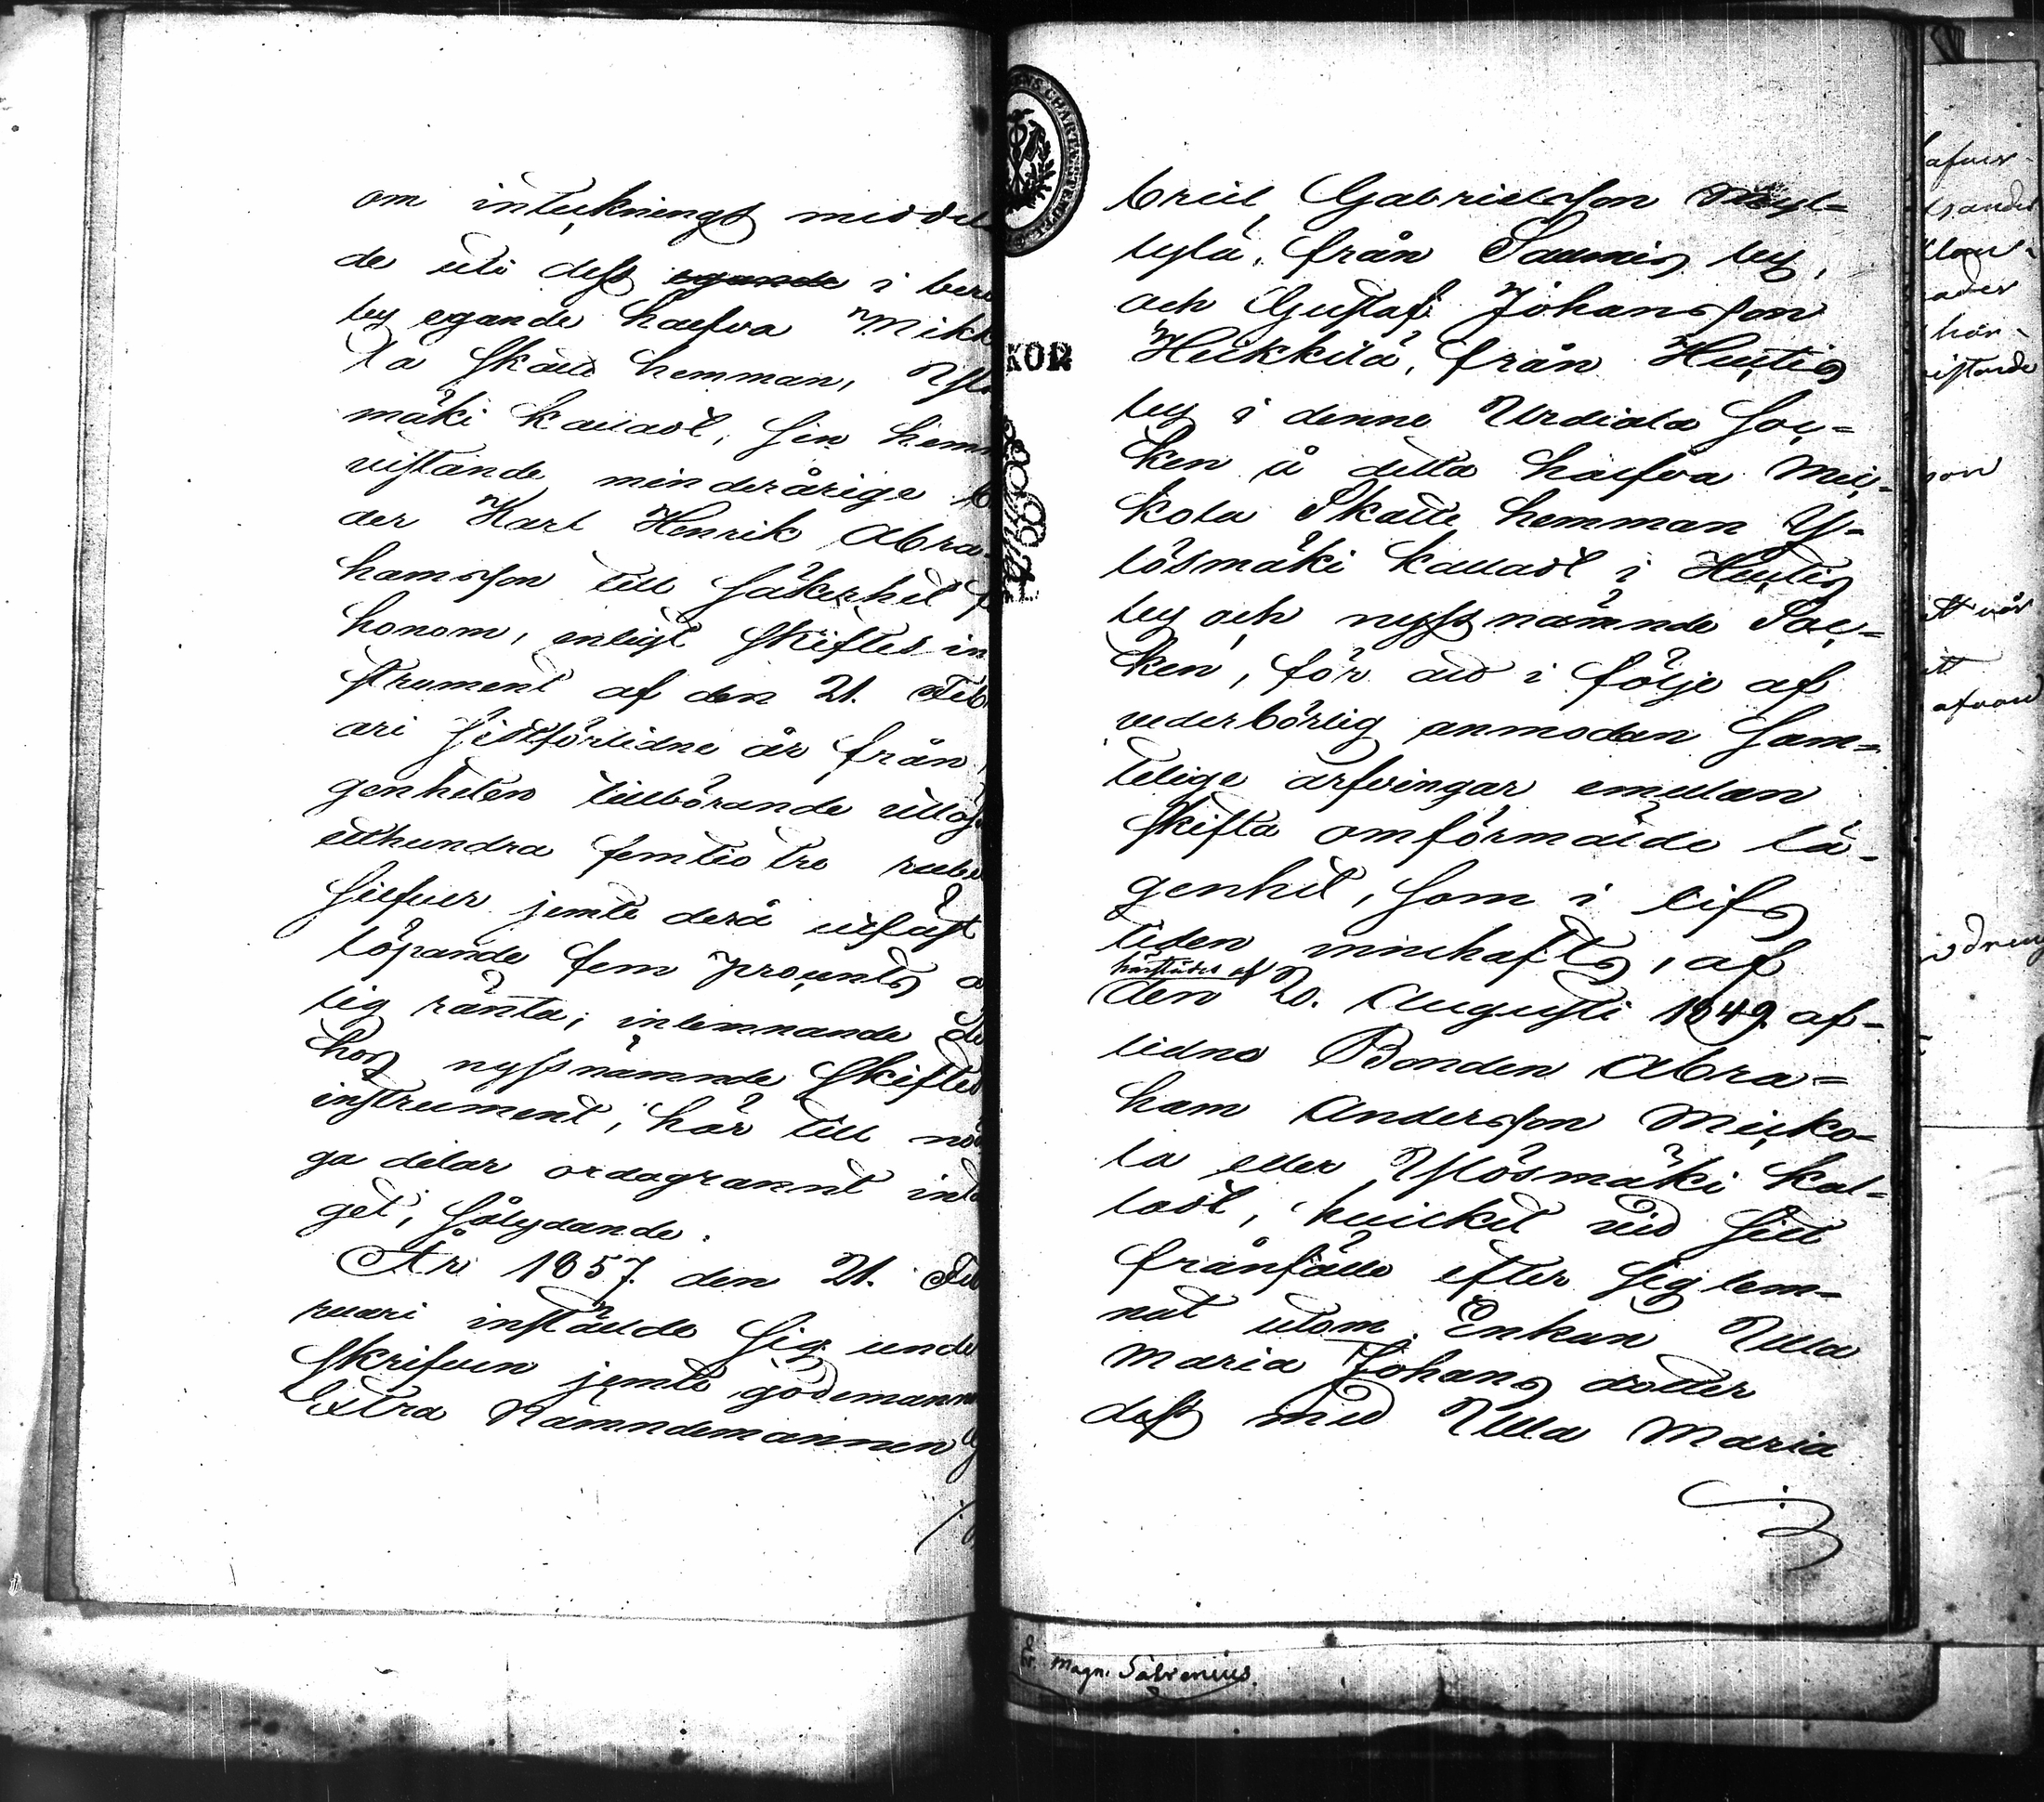 om inteckningß medde
de uti deß egande i ber
by egande halfva Mikk
la Skatte hemman, Yl
mäki kalladt, sin hem
vistande minderårige B
der Karl Henrik Abra-
hamsson till säkerhet f
honom, enligt Skiftes in
strument af den 21. Feb
ari sistförlidne år från
genheten tillbörande utlös
etthundra femtio tre rube
Silfver jemte derå utfäst
löpande fem procents å
lig ränta; inlemnande de
hos nyssnämnde Skiftes
instrument, här till nö
ga delar ordagrannt inta
get, sålydande:
År 1857. den 21. Feb
ruari inställde sig unde
skrifven jemte gode mann
Extra Nämndemannen
briel Gabrielsson Myl=
lylä, från Saunis by,
och Gustaf Johansson
Heikkilä, från Huhtis
by i denne Urdiala Soc=
ken å detta halfva Mic=
kola Skatte hemman Y=
lösmäki kalladt i Huhtis
by och nyssnämnde Soc=
ken, för att i följe af
vederbörlig anmodan sam=
telige arfvingar emellan
skifta omförmälde lä-
genhet, som i lifs
tiden innehafts, af
härstädes af
den 20. Augusti 1849. af-
lidne Bonden Abra=
ham Andersson Micko-
la eller Ylösmäki kal-
ladt, hvilket vid sitt
frånfälle efter sig lem-
nat utom Enkan Ulla
Maria Johans dotter
deß med Ulla Maria
KOP
Magn. Salvenius.